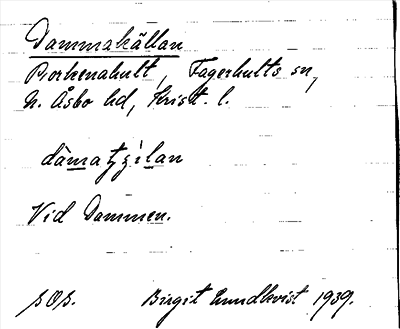 Dammakällan
Borkenahult, Fagerhults sn,
N. Åsbo hd, Krist. l.
Vid Dammen.
Birgit Lundkvist 1939.